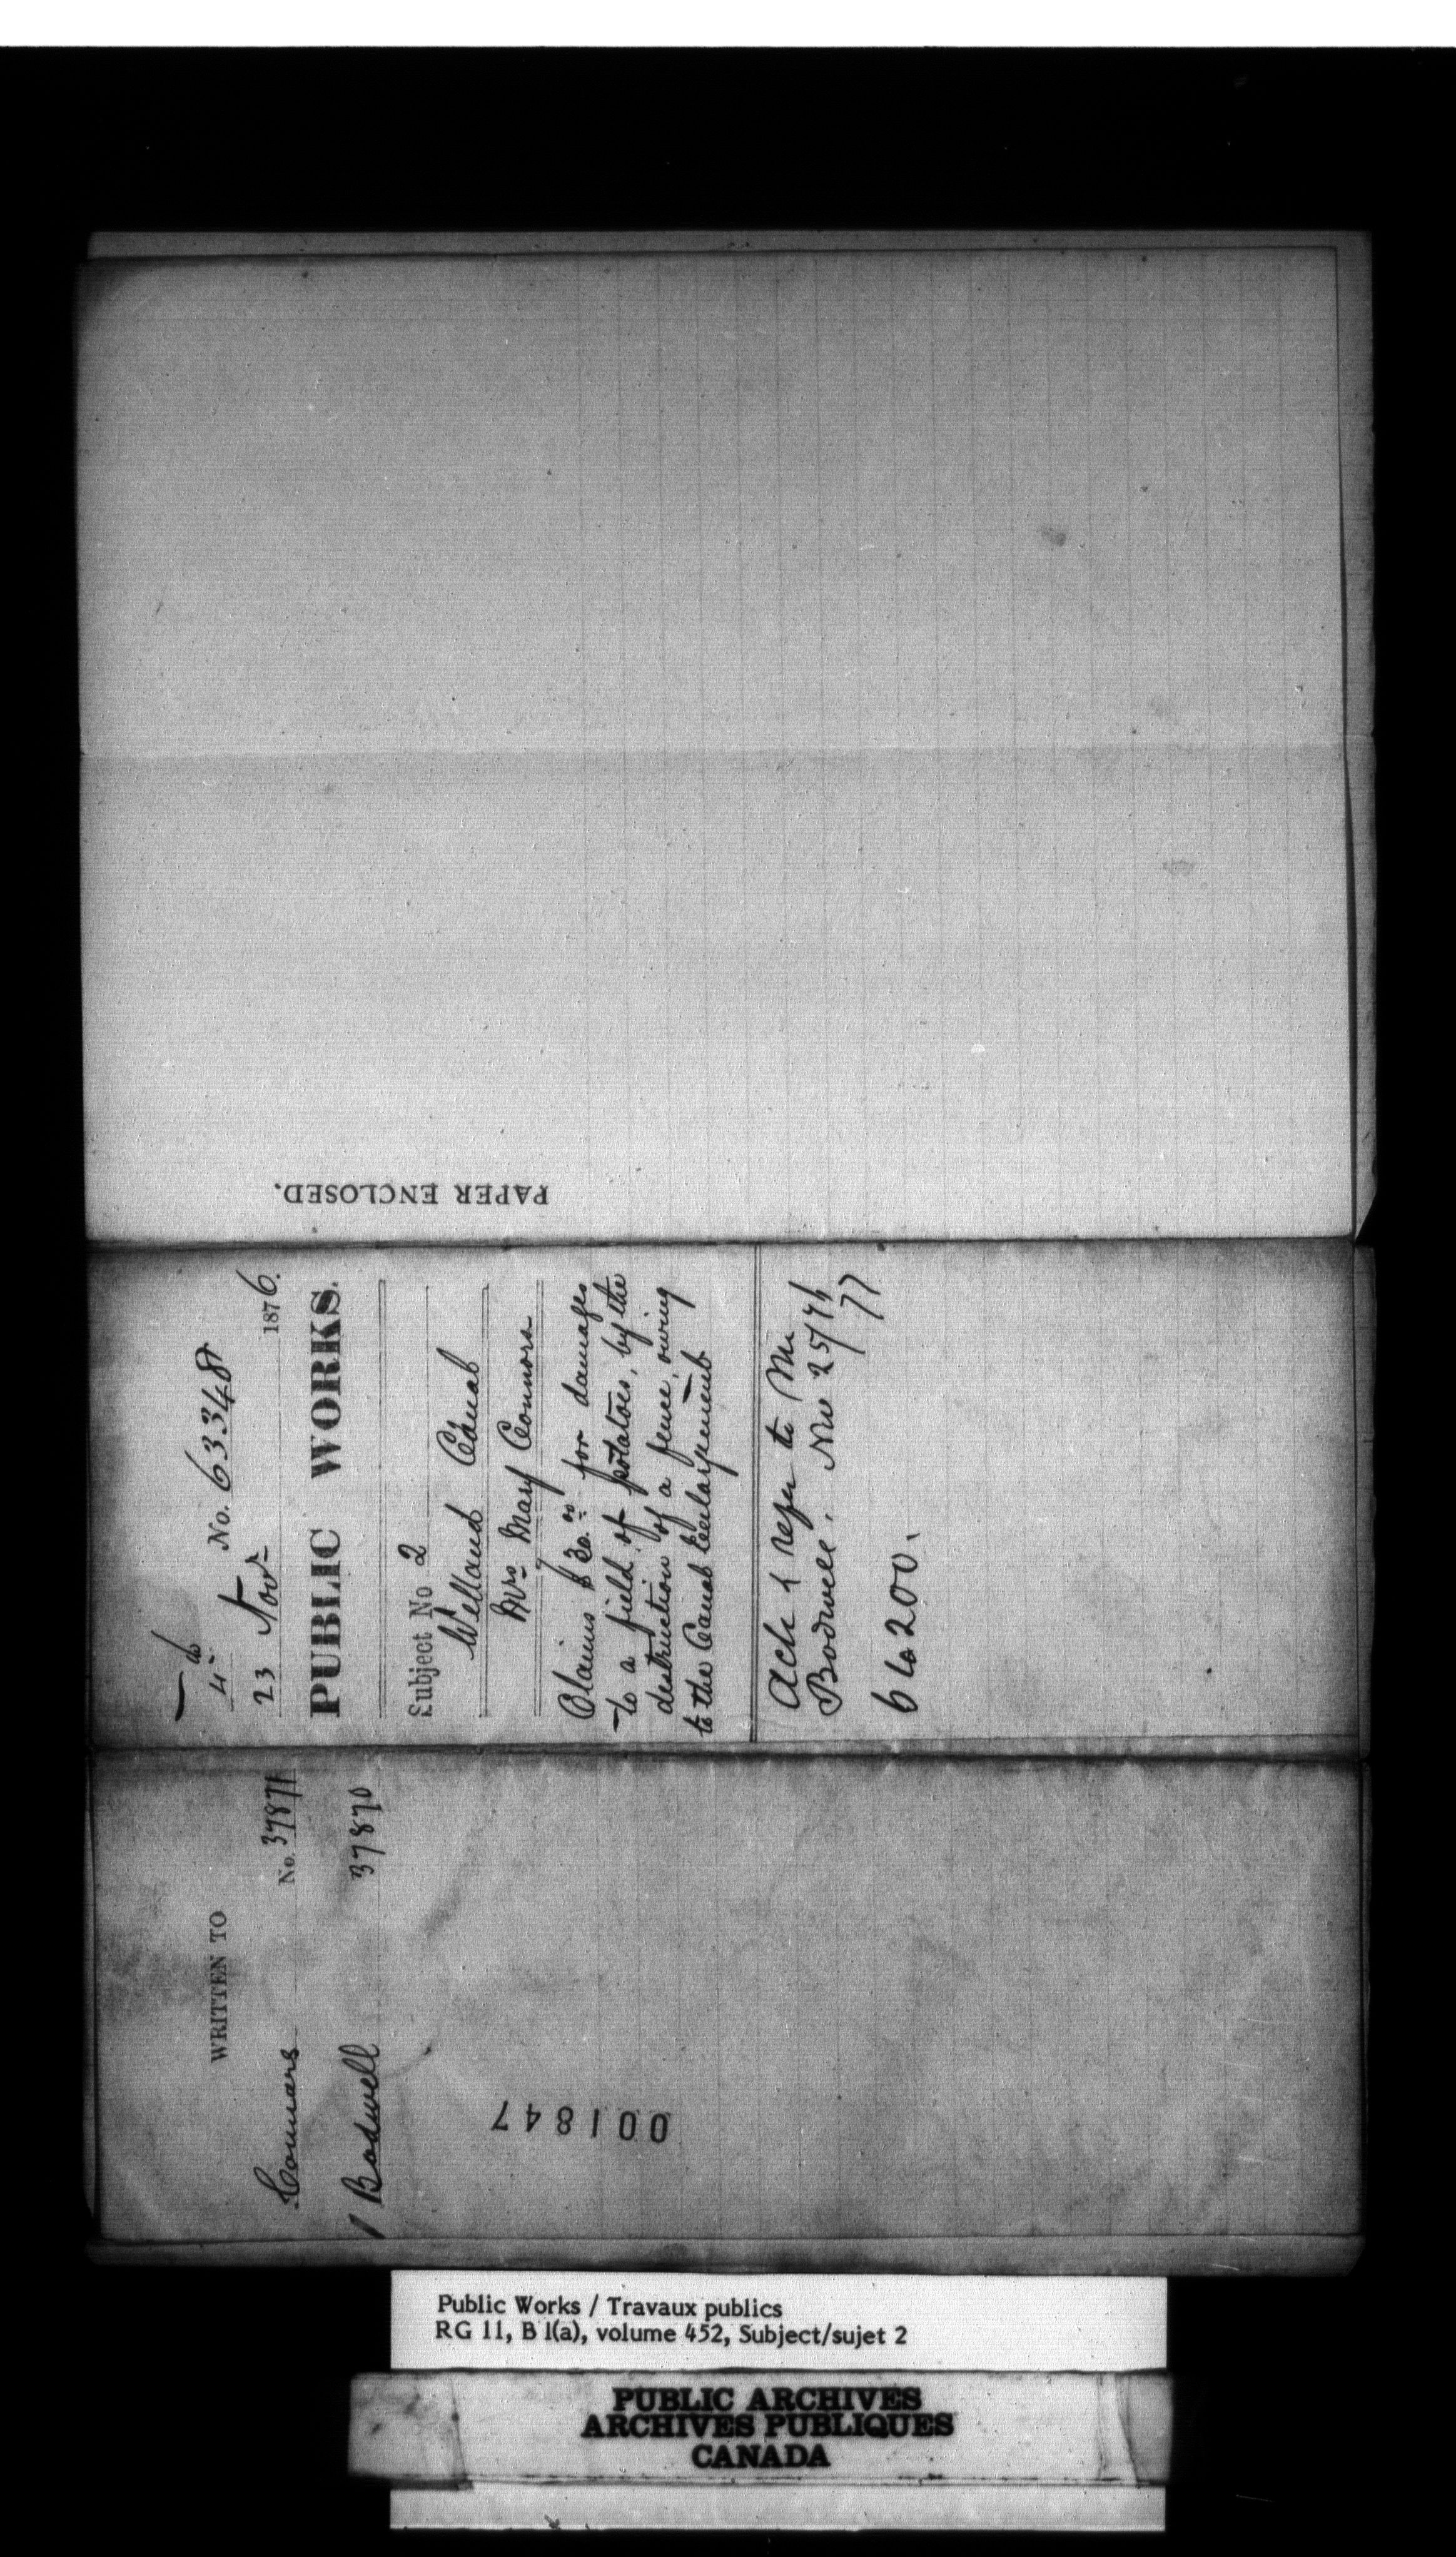 PAPER ENCLOSED.
No. 63348
23 Novr 1876.
PUBLIC WORKS.
Subject No 2
Welland Canal
Mrs Mary Connors
Claims $30.00 for damages
to a field of potatoes, by the
destruction of a fence, owing
to the Canal Enlargement
Ack & refer to Mr
Bodwell. Nov 25/76
77
6200.
WRITTEN TO
Connors No. 37871
Bodwell 37870
001847
Public Works / Travaux publics
RG 11, B 1(a), volume 452, Subject/sujet 2
PUBLIC ARCHIVES
ARCHIVES PUBLIQUES
CANADA